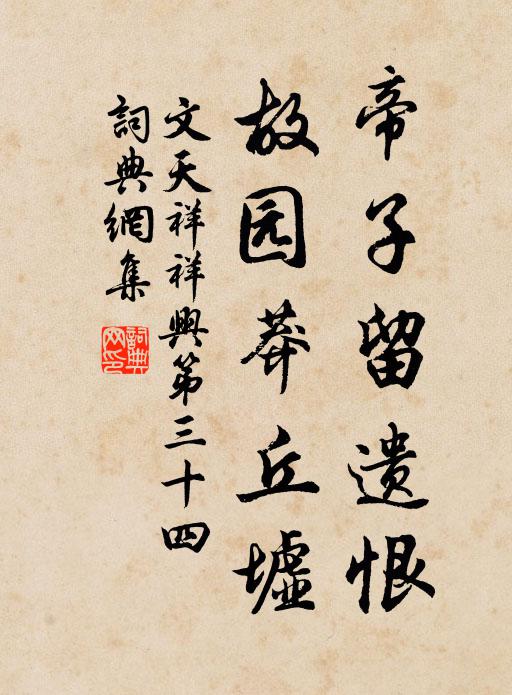 帝子留遗恨
故园莽丘墟
文天祥祥興第三十四
詞典網集
詞典网印